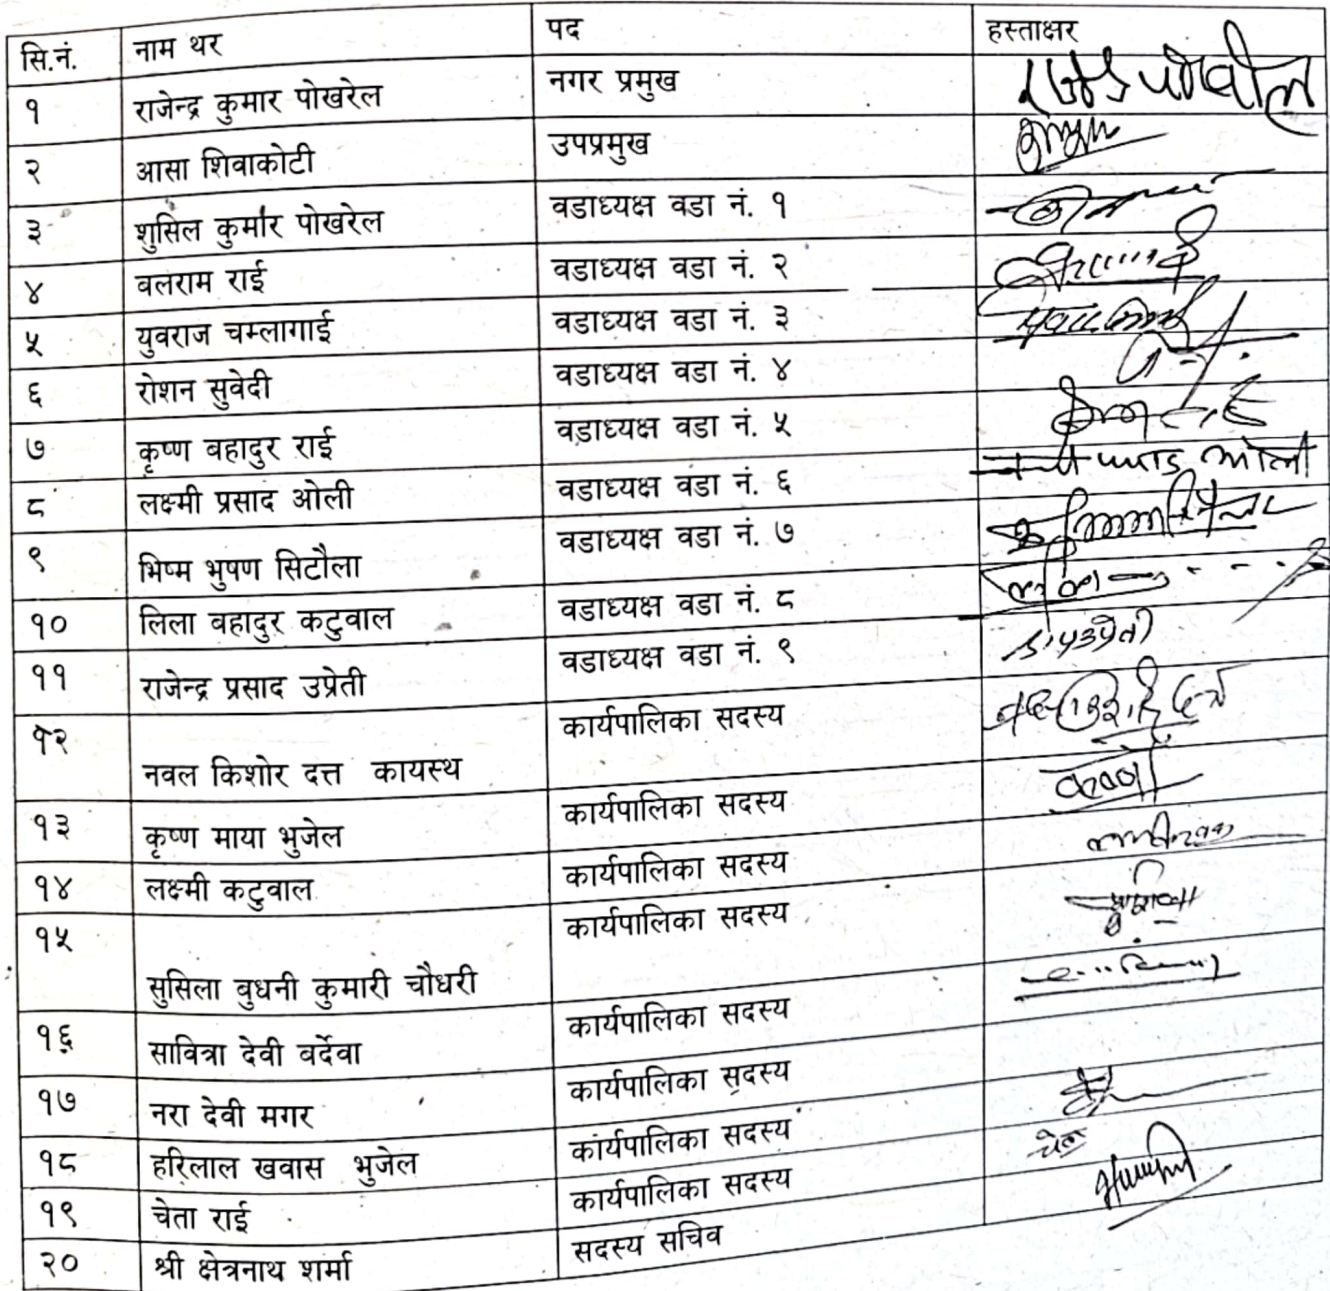 सि.नं. नाम थर पद हस्ताक्षर
१ राजेन्द्र कुमार पोखरेल नगर प्रमुख
२ आसा शिवाकोटी उपप्रमुख
३ शुसिल कुमार पोखरेल वडाध्यक्ष वडा नं. १
४ वलराम राई वडाध्यक्ष वडा नं. २
५ युवराज चम्लागाई वडाध्यक्ष वडा नं. ३
६ रोशन सुवेदी वडाध्यक्ष वडा नं. ४
७ कृष्ण बहादुर राई वडाध्यक्ष वडा नं. ५
८ लक्ष्मी प्रसाद ओली वडाध्यक्ष वडा नं. ६
९ भिष्म भुषण सिटौला वडाध्यक्ष वडा नं. ७
१० लिला बहादुर कटुवाल वडाध्यक्ष वडा नं. ८
११ राजेन्द्र प्रसाद उप्रेती वडाध्यक्ष वडा नं. ९
१२ नवल किशोर दत्त कायस्थ कार्यपालिका सदस्य
१३ कृष्ण माया भुजेल कार्यपालिका सदस्य
१४ लक्ष्मी कटुवाल कार्यपालिका सदस्य
१५ सुसिला बुधनी कुमारी चौधरी कार्यपालिका सदस्य
१६ सावित्रा देवी बर्देवा कार्यपालिका सदस्य
१७ नरा देवी मगर कार्यपालिका सदस्य
१८ हरिलाल खवास भुजेल कार्यपालिका सदस्य
१९ चेता राई कार्यपालिका सदस्य
२० श्री क्षेत्रनाथ शर्मा सदस्य सचिव